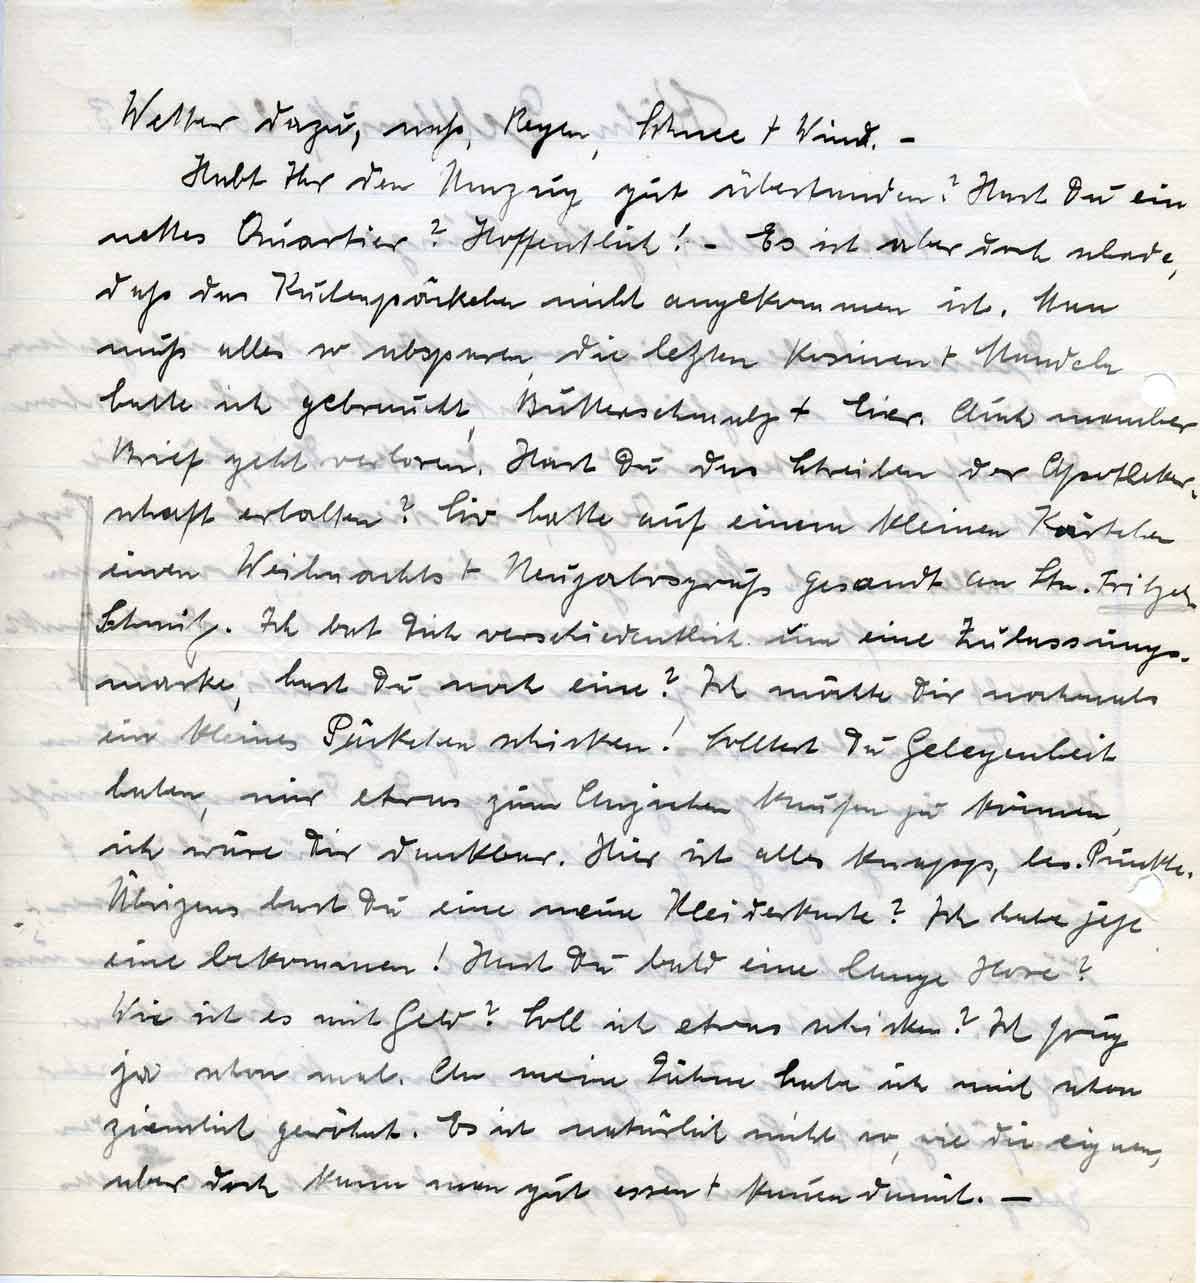 Wetter dazu, naß, Regen, Schnee + Wind. –
Habt Ihr den Umzug gut überstanden? Hast Du ein
nettes Quartier? Hoffentlich! – Es ist aber doch schade,
daß das Kuchenpäckchen nicht angekommen ist. Man
muß alles so absparen, die letzten Rosinen + Mandeln
hatte ich gebraucht, Butterschmalz + Eier. Auch mancher
Brief geht verloren. Hast Du das Schreiben der Apotheker-
schaft erhalten? Sie hatte auf einem kleinen Kärtchen
einen Weihnachts + Neujahrsgruß gesandt an Stn. Fritzch
Schmitz. Ich bat Dich verschiedentlich um eine Zulassungs-
marke, hast Du noch eine? Ich möchte Dir nochmals
ein kleines Päckchen schicken! Solltest Du Gelegenheit
haben, mir etwas zum Anziehen kaufen zu können,
ich wäre Dir dankbar. Hier ist alles knapp, bes. Punkte.
Übrigens hast Du eine neue Kleiderkarte? Ich habe jetzt
eine bekommen! Hast Du bald eine lange Hose?
Wie ist es mit Geld? Soll ich etwas schicken? Ich frug
ja schon mal. An meine Zähne habe ich mich schon
ziemlich gewöhnt. Es ist natürlich nicht so, wie die eignen,
aber doch kann man gut essen + kauen damit. –